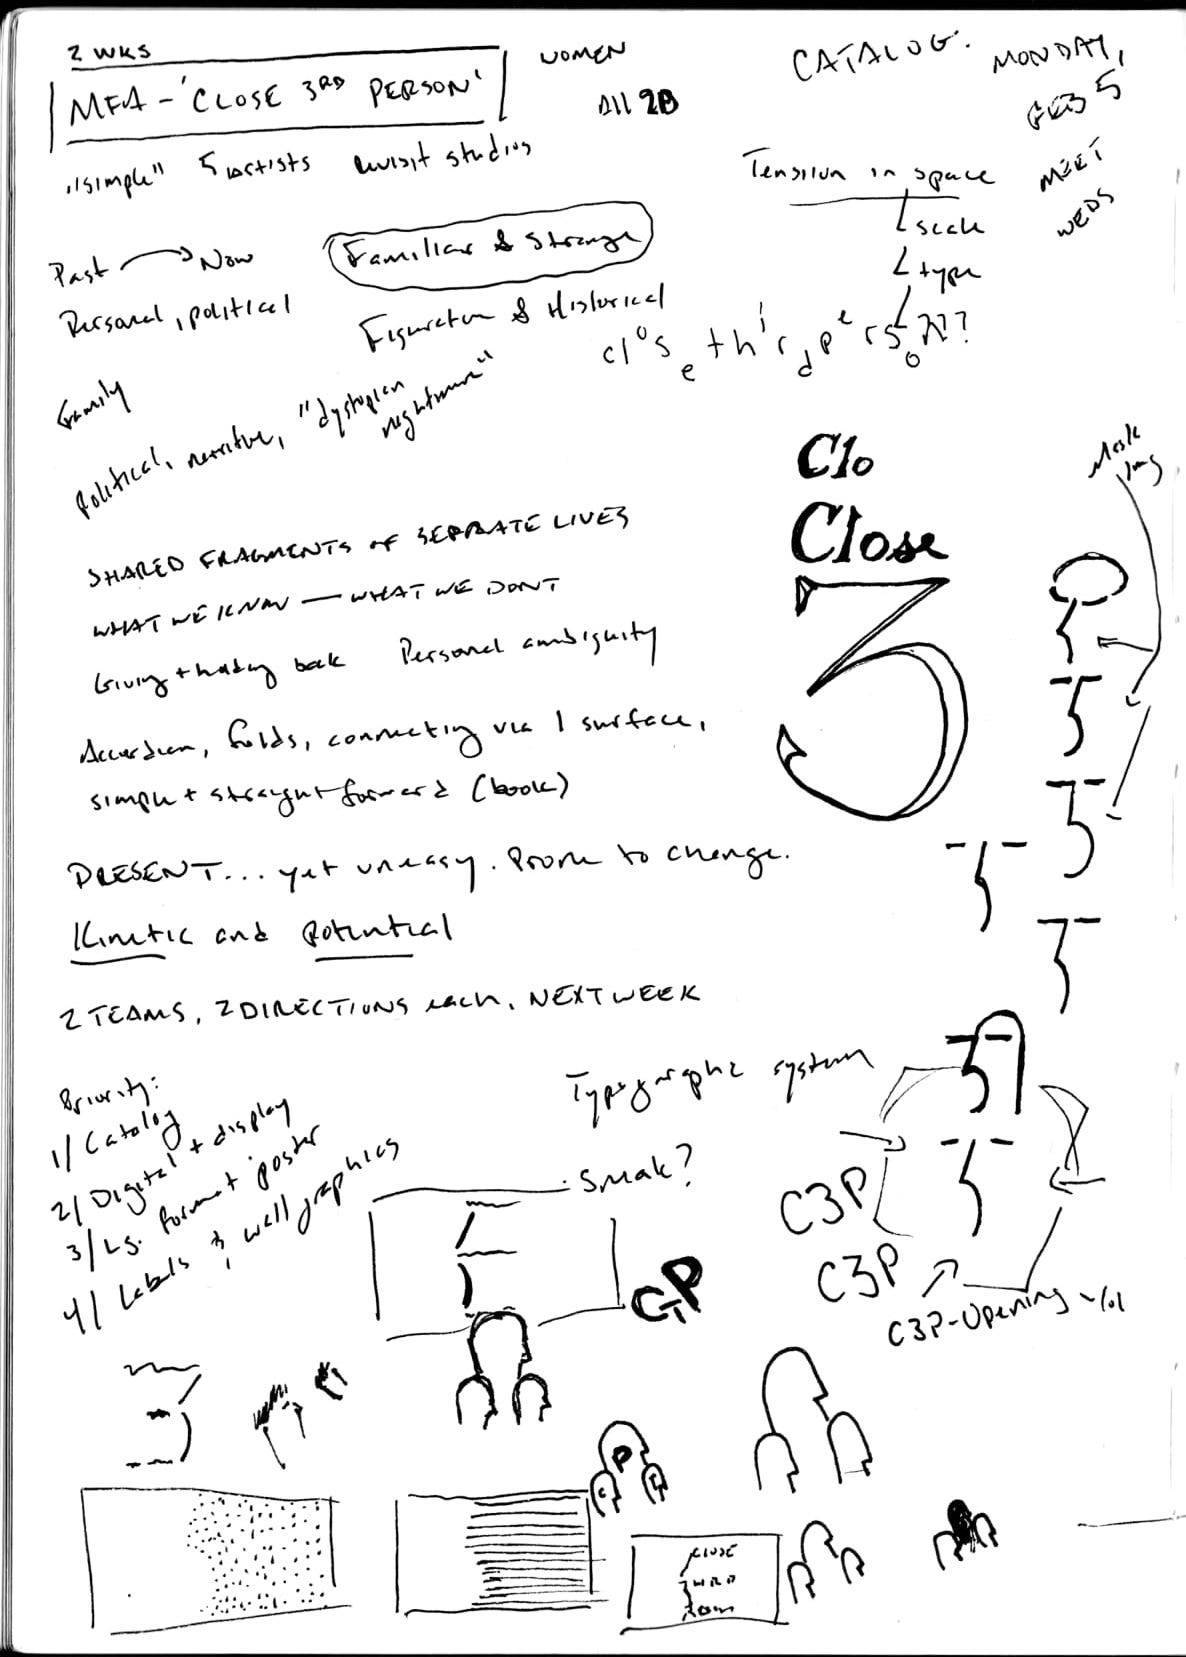 2 WKS
MFA - 'CLOSE 3RD PERSON'
WOMEN
All 2D
CATALOG.
MONDAY,
FEB 5
MEET
WEDS
"simple" 5 artists revisit studios
Tension in space
scale
type
Past → Now
Familiar & Strange
Personal, political
Figuration & Historical
close third person???
Family
Political, narrative, "dystopian
nightmare"
Clo
Close
3
Mask
SHARED FRAGMENTS OF SEPARATE LIVES
WHAT WE KNOW — WHAT WE DONT
Giving + holding back Personal ambiguity
Accordion, folds, connecting via 1 surface,
simple + straightforward (book)
PRESENT... yet uneasy. Prone to change.
Kinetic and potential
2 TEAMS, 2 DIRECTIONS each, NEXT WEEK
Priority:
1/ Catalog
2/ Digital + display
3/ Lg. format poster
4/ Labels & wall graphics
Typographic system
C3P
C3P
C3P-Opening
CTP
P
CLOSE